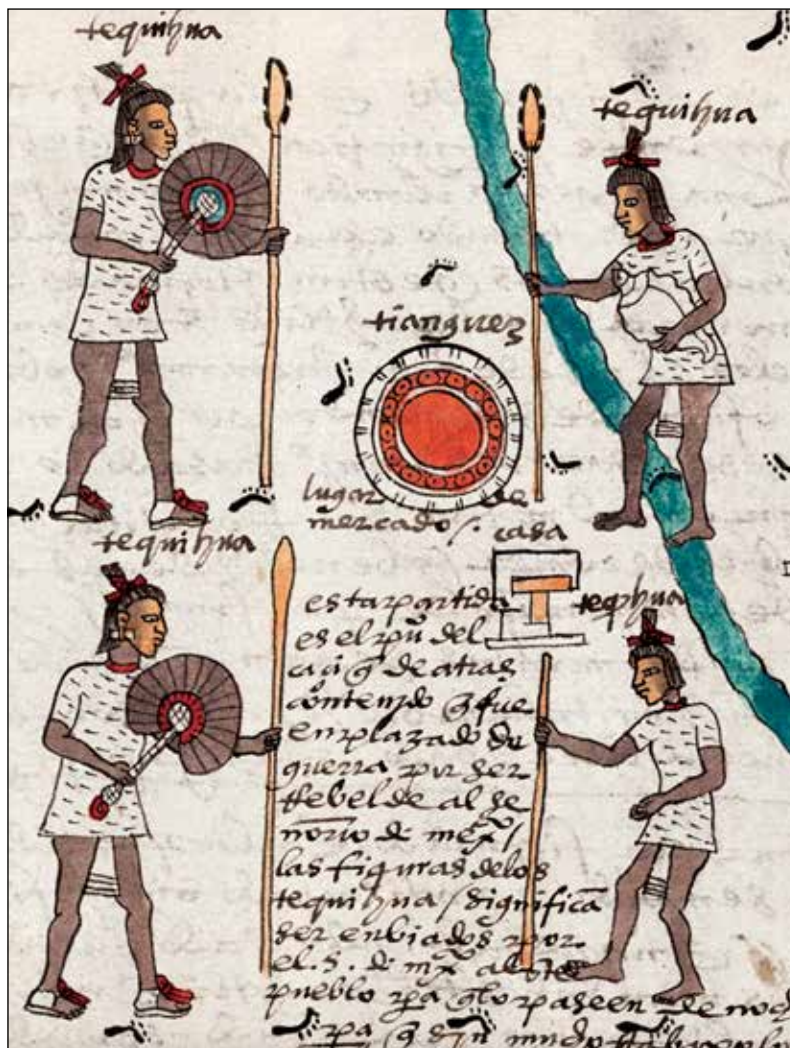 tequihua
tequihua
tianguez
lugar de
mercado /.
casa
tequihua
teqhua
esta partida
es el pu del
caci q de atras
contenydo q fue
enplazado de
guerra por ser
rebelde al se
norio de mexº /
las figuras de los
tequihua / significã
ser enbiados por
el. s. de mexº a este
pueblo pa q lo paseen de noch
pa q sin